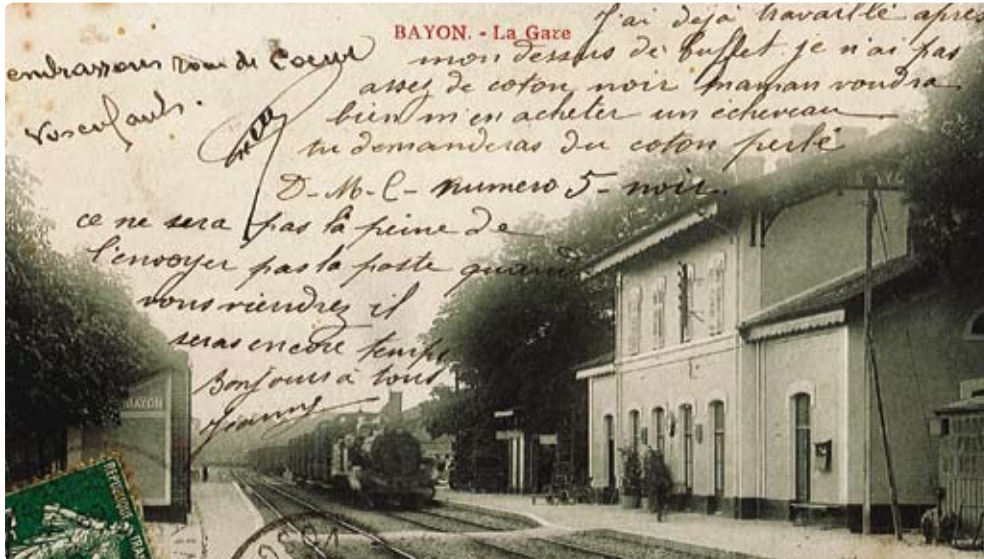 BAYON. - La Gare
J'ai déjà travaillé après
mon dessus de buffet je n'ai pas
assez de coton noir maman voudra
bien m'en acheter un écheveau
tu demanderas du coton perlé
D-M-C- numero 5- noir.
ce ne sera pas la peine de
l'envoyer par la poste quand
vous viendrez il
seras encore temps
Bonjours à tous
Jeanne
embrassons tous de Coeur
Vos enfants.
BAYON